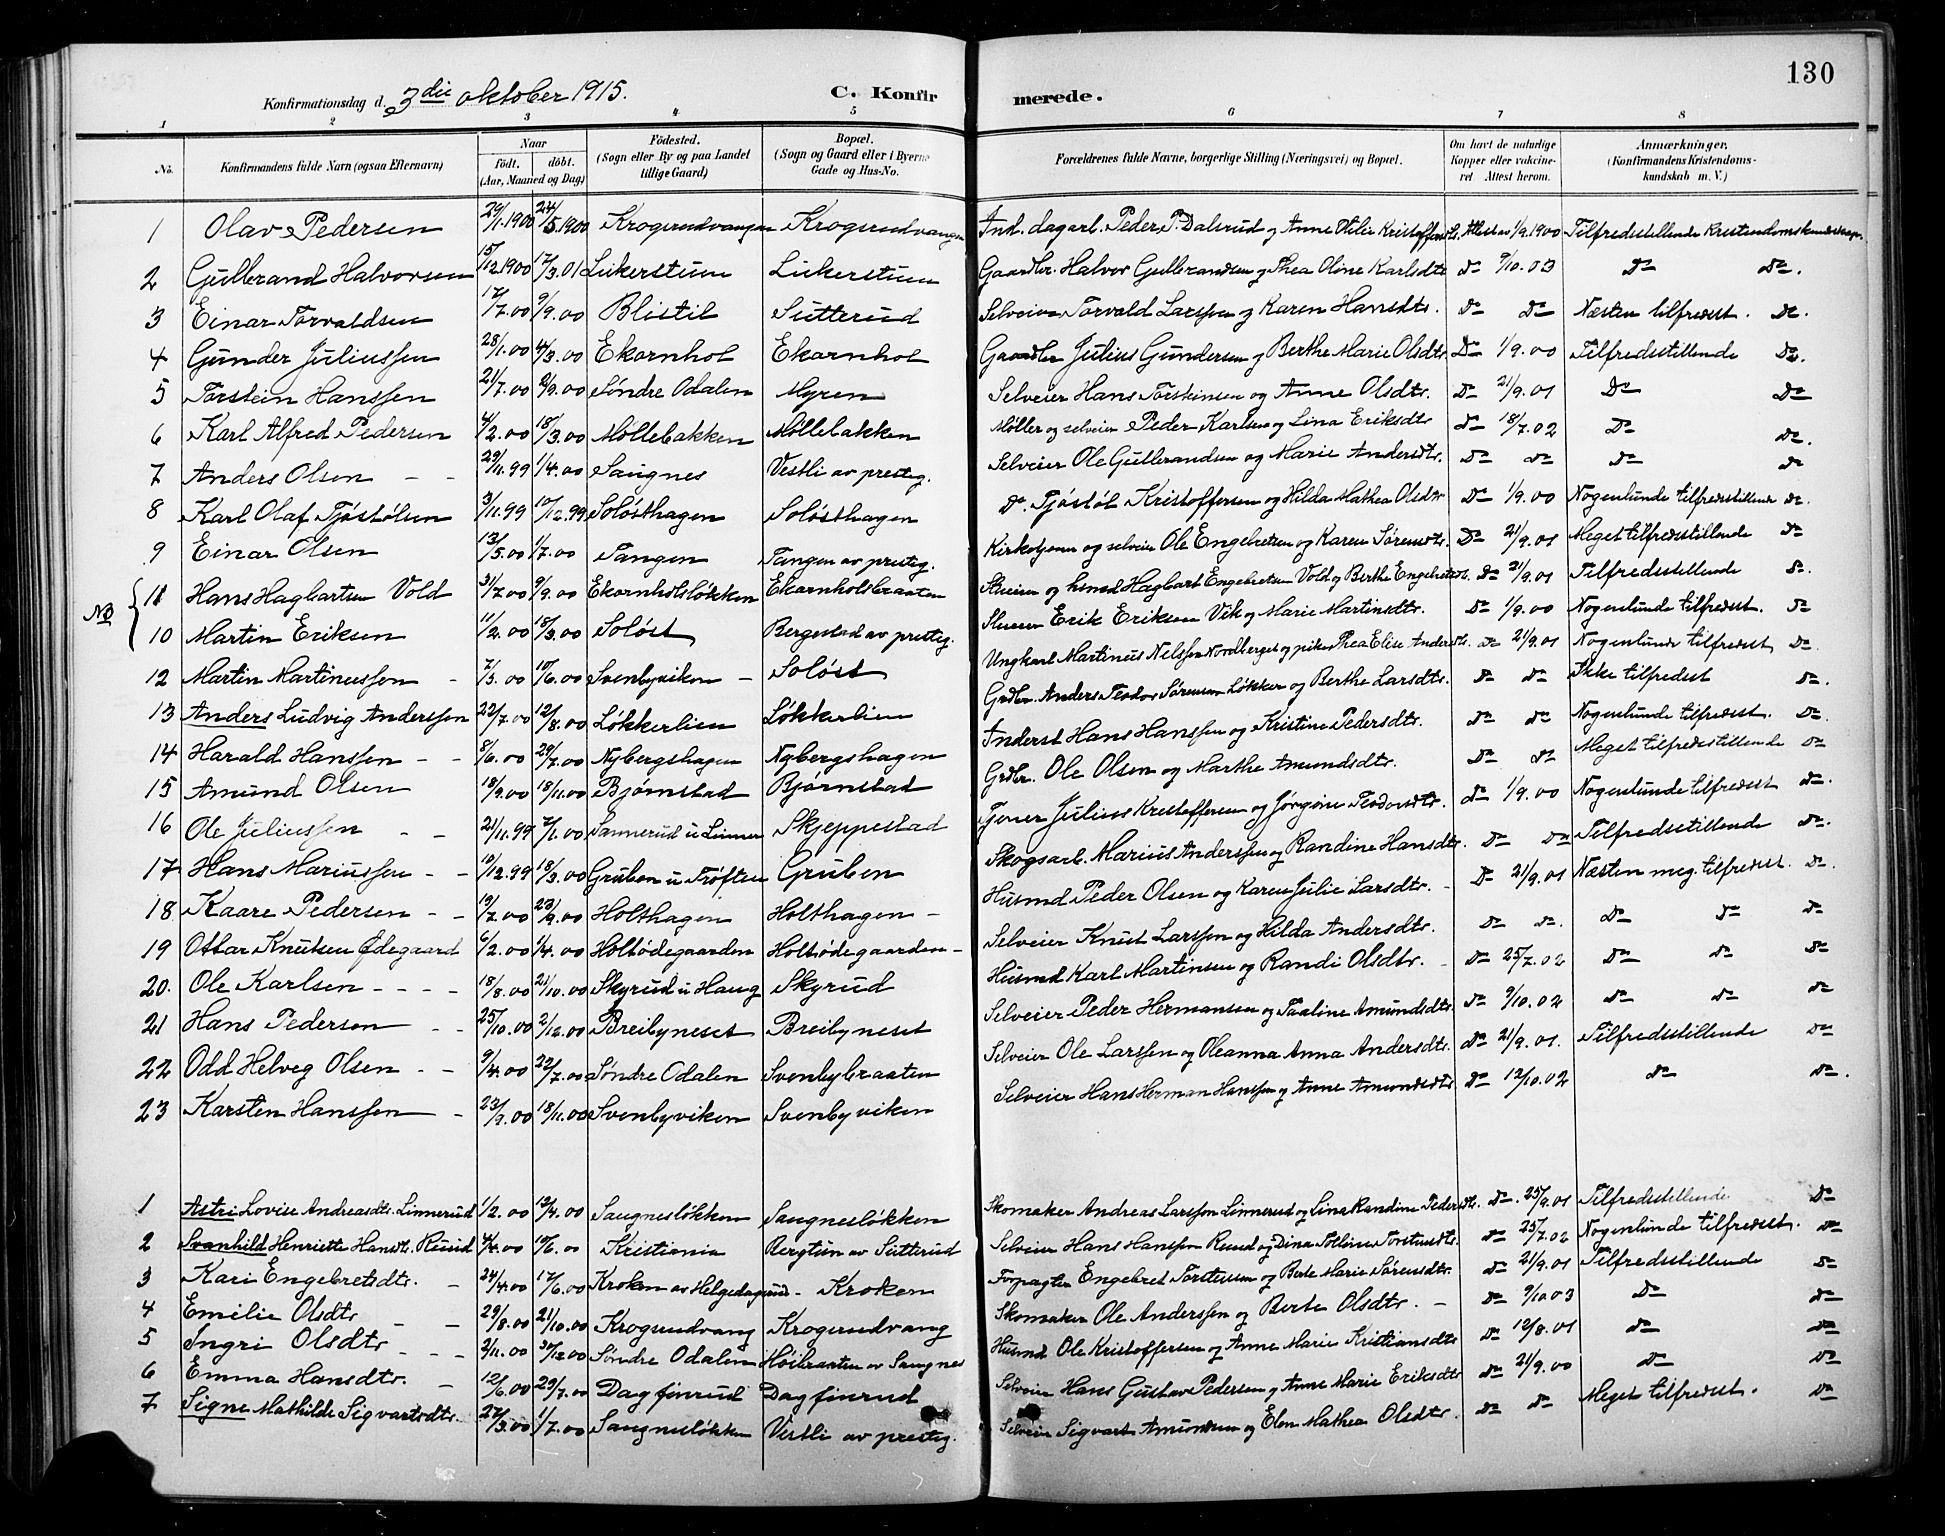 130
Konfirmationsdag d. 3die oktober 1915. C. Konfirmerede.
1 2 3 4 5 6 7 8
No. Konfirmandens fulde Navn (ogsaa Efternavn) Naar födt. döbt. (Aar, Maaned og Dag) Födested. (Sogn eller By og paa Landet tillige Gaard) Bopæl. (Sogn og Gaard eller i Byerne Gade og Hus-No. Forældrenes fulde Navne, borgerlige Stilling (Næringsvei) og Bopæl. Om havt de naturlige Kopper eller vakcineret Attest herom. Anmærkninger. (Konfirmandens Kristendomskundskab m. V.)
1 Olav Pedersen 29/1.1900 24/5.1900 Krogsrudvangen Krogsrudvangen Ind. dagarb. Peder P. Dalsrud og Anne Otilie Kristoffersdtr. Attest av 1/9.1900 Tilfredsstillende Kristendomskundskap.
2 Gulbrand Halvorsen 15/12.1900 17/3.01 Lukerstuen Lukerstuen Gaardbr. Halvor Gulbrandsen og Thea Oline Karlsdtr. Do 9/10.03 Do Do.
3 Einar Torvaldsen 17/7.00 9/9.00 Blistil Sutterud Selveier Torvald Larssen og Karen Hansdtr. Do Do Næsten tilfredsst. Do.
4 Gunder Juliussen 28/1.00 4/3.00 Ekornhol Ekornhol Gaardbr Julius Gundersen og Berthe Marie Olsdtr. Do 1/9.00 Tilfredsstillende Do.
5 Torstein Hanssen 21/7.00 2/9.00 Søndre Odalen Myren Selveier Hans Torsteinsen og Anne Olsdtr. Do 21/9.01 Do Do
6 Karl Alfred Pedersen 4/2.00 18/3.00 Møllebakken Møllebakken Møller og selveier Peder Karlsen og Lina Eriksdtr Do 18/7.02 Do Do.
7 Anders Olsen 29/11.99 1/4.00 Saugnes Vestli av presteg. Selveier Ole Gulbrandsen og Marie Andersdtr. Do Do Do Do
8 Karl Olaf Tjøstølsen 3/11.99 10/12.99 Soløsthagen Soløsthagen Do. Tjøstøl Kristoffersen og Hilda Mathea Olsdtr Do 1/9.00 Nogenlunde tilfredsstillende Do.
9 Einar Olsen 13/5.00 1/7.00 Tangen Tangen av presteg. Kirketjener og selveier Ole Engebretsen og Karen Sørensdtr. Do 21/9.01 Meget tilfredsstillende Do
NB { 11 Hans Hagbartsen Vold 31/7.00 9/9.00 Ekornholsløkken Ekornholsbraaten og husmd Hagbart Engebretsen Vold og Berthe Engebretsdtr. Do 21/9.01 Tilfredsstillende Do.
10 Martin Eriksen 11/2.00 18/3.00 Soløst Bergestad av presteg. Erik Eriksen Vik og Marie Martinsdtr. Do 1/9.00 Nogenlunde tilfredsst. Do
12 Martin Martinussen 7/3.00 10/6.00 Svenbyviken Soløst Ungkarl Martinus Nelssen Nordberget og pike Thea Elise Andersdtr. Do 21/9.01 Nogenlunde tilfredsst Do
13 Anders Ludvig Anderssen 22/7.00 12/8.00 Løkkerlien Løkkerlien Grdbr. Anders Teodor Sørensen Løkker og Berthe Larsdtr. Do Do Ikke tilfredsst Do.
14 Harald Hanssen 8/6.00 29/7.00 Nybergshagen Nybergshagen Inderst Hans Hanssen og Kristine Pedersdtr. Do Do Nogenlunde tilfredsst. Do.
15 Amund Olsen 18/9.00 18/11.00 Bjørnstad Bjørnstad Grdbr. Ole Olsen og Marthe Amundsdtr. Do Do Meget tilfredsstillende Do
16 Ole Juliussen 21/11.99 7/1.00 Sannerud u Linner Skjeppestad Tjener Julius Kristoffersen og Jørgine Teodorsdtr. Do 1/9.00 Nogenlunde tilfredsst Do.
17 Hans Mariussen 10/12.99 18/3.00 Gruben u Trøften Gruben Skogsarb. Marius Anderssen og Randine Hansdtr. Do Do Tilfredsstillende Do.
18 Kaare Pedersen 19/7.00 23/9.00 Holthagen Holthagen Husmd Peder Olsen og Karen Julie Larsdtr. Do 21/9.01 Næsten meg. tilfredsst. Do
19 Ottar Knutsen Ødegaard 6/2.00 1/4.00 Holtødegaarden Holtødegaarden Selveier Knut Larssen og Hilda Andersdtr. Do Do. Do Do Do
20. Ole Karlsen 18/8.00 21/10.00 Skyrud u Haug Skyrud Husmd Karl Martinsen og Randi Olsdtr. Do 25/7.02 Do Do Do
21 Hans Pedersen 25/10.00 2/12.00 Breibyneset Breibyneset Selveier Peder Hermansen og Pauline Amundsdtr Do 9/10.02 Do Do Do
22 Odd Helveg Olsen 9/4.00 22/7.00 Søndre Odalen Svenbybraaten Selveier Ole Larssen og Oleanna Anna Andersdtr. Do 21/9.01. Tilfredsstillende Do
23 Karsten Hanssen 23/9.00 18/11.00 Svenbyviken Svenbyviken Selveier Hans Herman Hanssen og Anne Amundsdtr Do 12/10.02 Do Do.
1 Astri Lovise Andreasdtr. Linnerud 1/2.00 12/4.00 Saugnesløkken Saugnesløkken Skomaker Andreas Larssen Linnerud og Lina Randine Pedersdtr. Do. 25/9.01 Tilfredsstillende Do
2 Svanhild Henriette Hansdt. Ruud 4/4.00 10/6.00 Kristiania Bergtun av Sutterud Selveier Hans Hanssen Ruud og Dina Torstensdtr. Do 25/7.02 Nogenlunde tilfredsst. Do
3 Kari Engebretsdtr. 24/4.00 17/6.00 Kroken av Helgedagsrud Kroken Forpagter Engebret Torstensen og Berte Marie Sørensdtr. Do 21/9.01 Tilfredsstillende Do
4 Emilie Olsdtr 29/8.00 21/10.00 Krogsrudvang Krogsrudvang Skomaker Ole Anderssen og Berte Olsdtr. Do 9/10.03 Do Do
5 Ingri Olsdtr 2/11.00 30/12.00 Søndre Odalen Høibraaten av Saugnes Husmd Ole Kristoffersen og Anne Marie Kristiansdtr Do 12/8.01 Do Do
6 Emma Hansdtr. 12/6.00 29/7.00 Dagfinrud Dagfinrud Selveier Hans Gustav Pedersen og Anne Marie Eriksdtr Do 21/9.00 Do Do
7 Signe Mathilde Sigvartsdtr. 27/3.00 1/7.00 Saugnesløkken Vestli av presteg. Selveier Sigvart Amundsen og Elen Mathea Olsdtr. Do Do Meget tilfredsst. Do